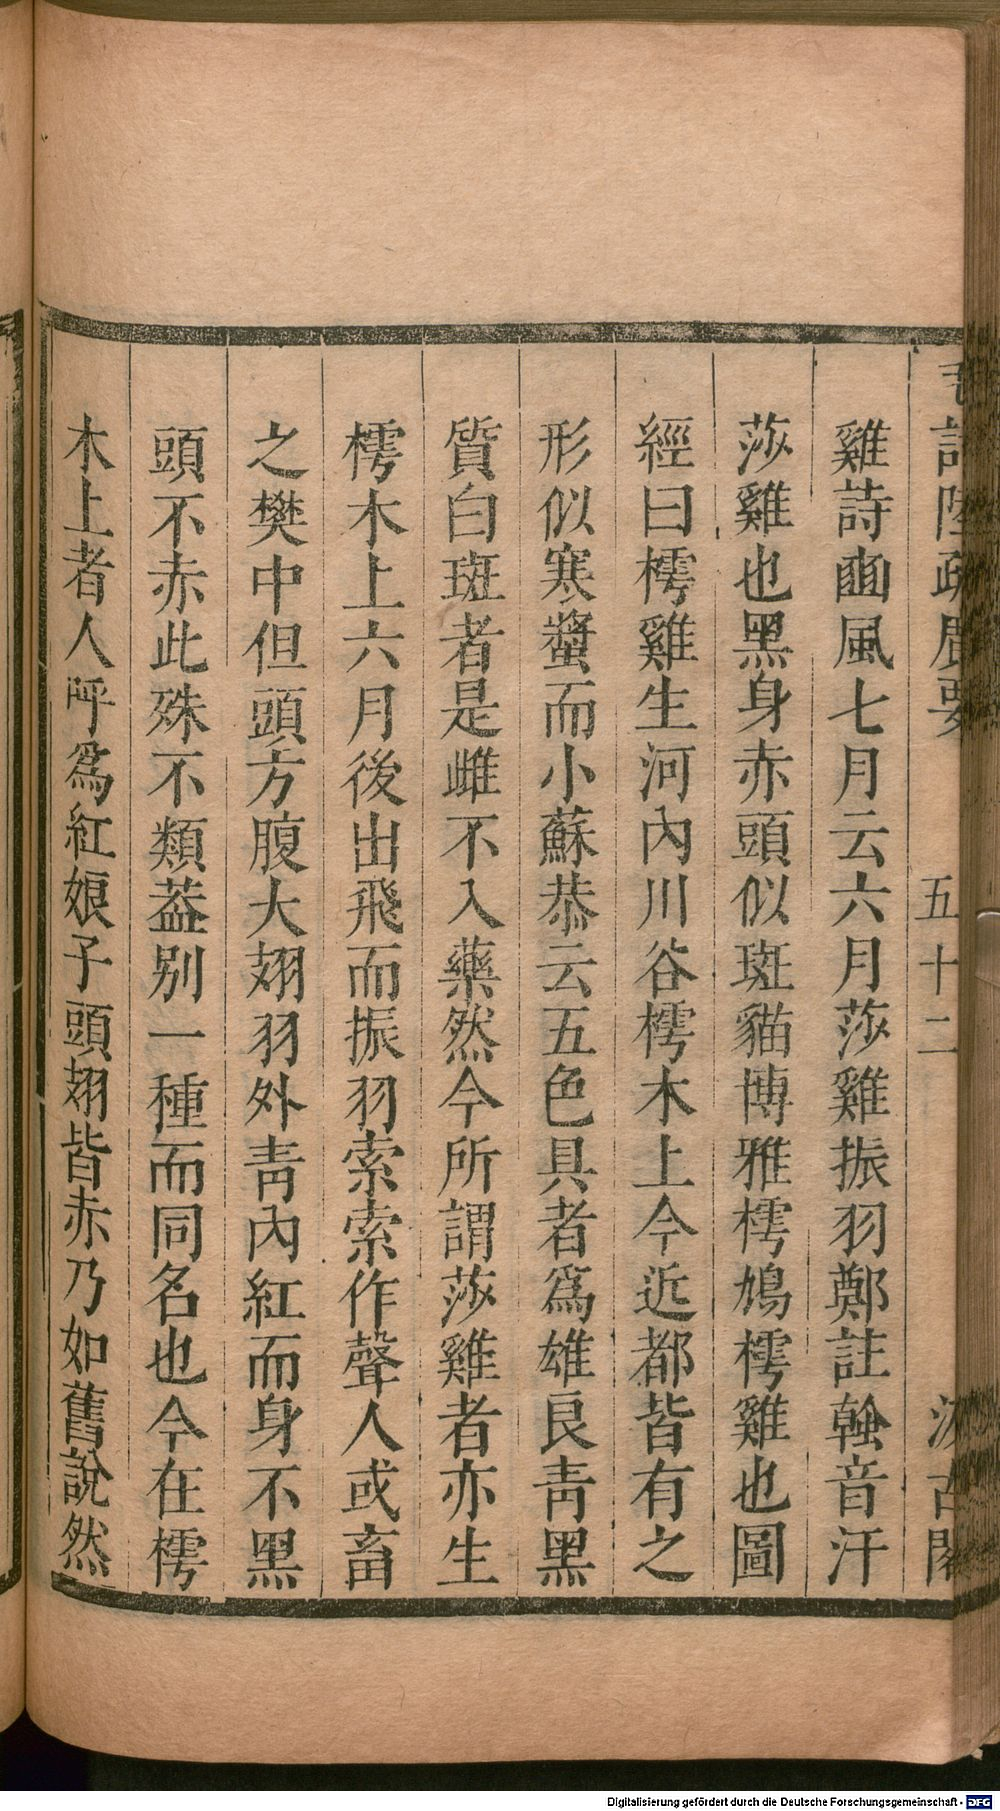 毛詩陸疏廣要 五十二 汲古閣
雞詩豳風七月云六月莎雞振羽鄭註䎐音汗
莎雞也黑身赤頭似斑貓博雅樗鳩樗雞也圖
經曰樗雞生河內川谷樗木上今近都皆有之
形似寒螿而小蘇恭云五色具者爲雄良青黑
質白斑者是雌不入藥然今所謂莎雞者亦生
樗木上六月後出飛而振羽索索作聲人或畜
之樊中但頭方腹大翅羽外青內紅而身不黑
頭不赤此殊不類葢別一種而同名也今在樗
木上者人呼爲紅娘子頭翅皆赤乃如舊說然
Digitalisierung gefördert durch die Deutsche Forschungsgemeinschaft - DFG